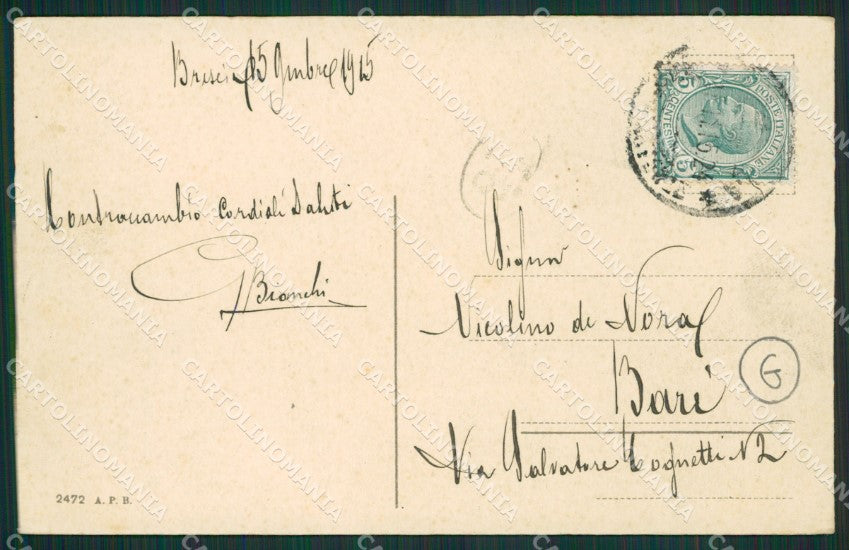 Brescia 15 9mbre 1915
Contracambio Cordiali Saluti
G Bianchi
2472 A. P. B.
POSTE ITALIANE
CENTESIMI
5
5
Signor
Nicolino de Nora
Bari
G
Via Salvatore Cognetti N 2
CARTOLINOMANIA